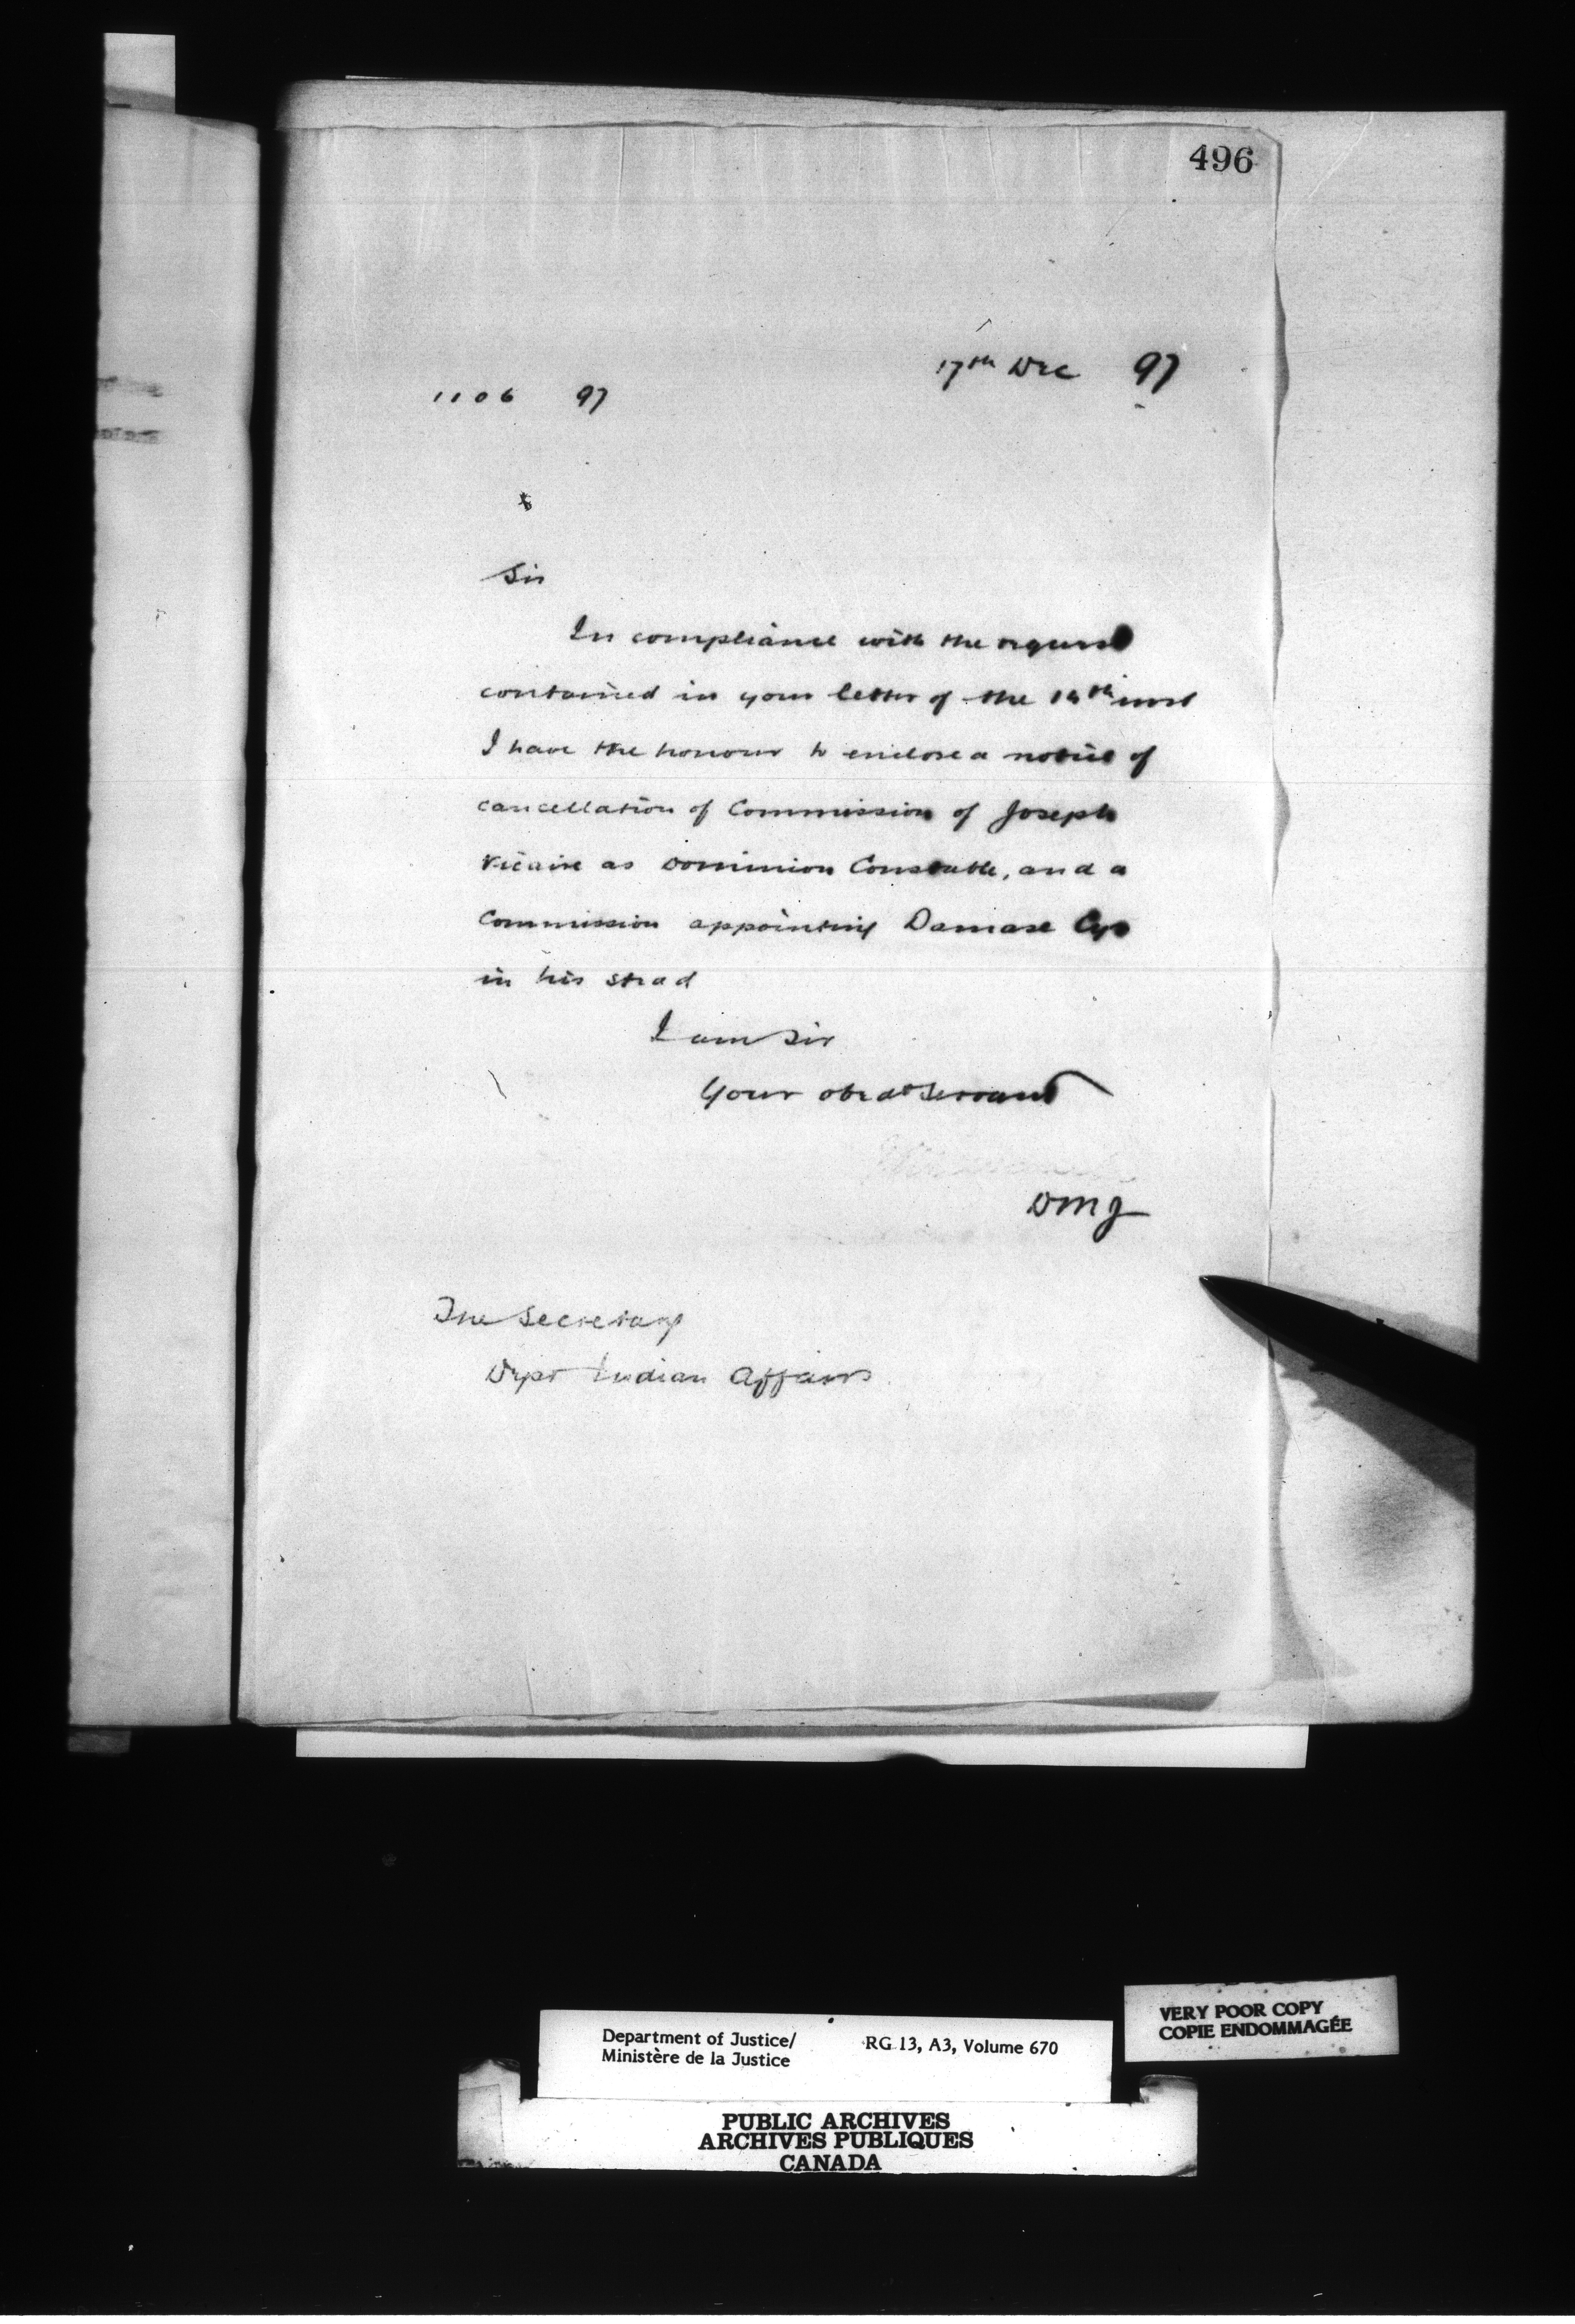 496
17th Dec 97
1106 97
Sir
In compliance with the request
contained in your letter of the 14th inst
I have the honour to enclose a notice of
cancellation of Commission of Joseph
Vicaire as Dominion Constable, and a
Commission appointing Damase Cyr
in his stead
I am Sir
Your obedt Servant
DMJ
The Secretary
Dept Indian Affairs
Department of Justice/
Ministère de la Justice
RG 13, A3, Volume 670
VERY POOR COPY
COPIE ENDOMMAGÉE
PUBLIC ARCHIVES
ARCHIVES PUBLIQUES
CANADA